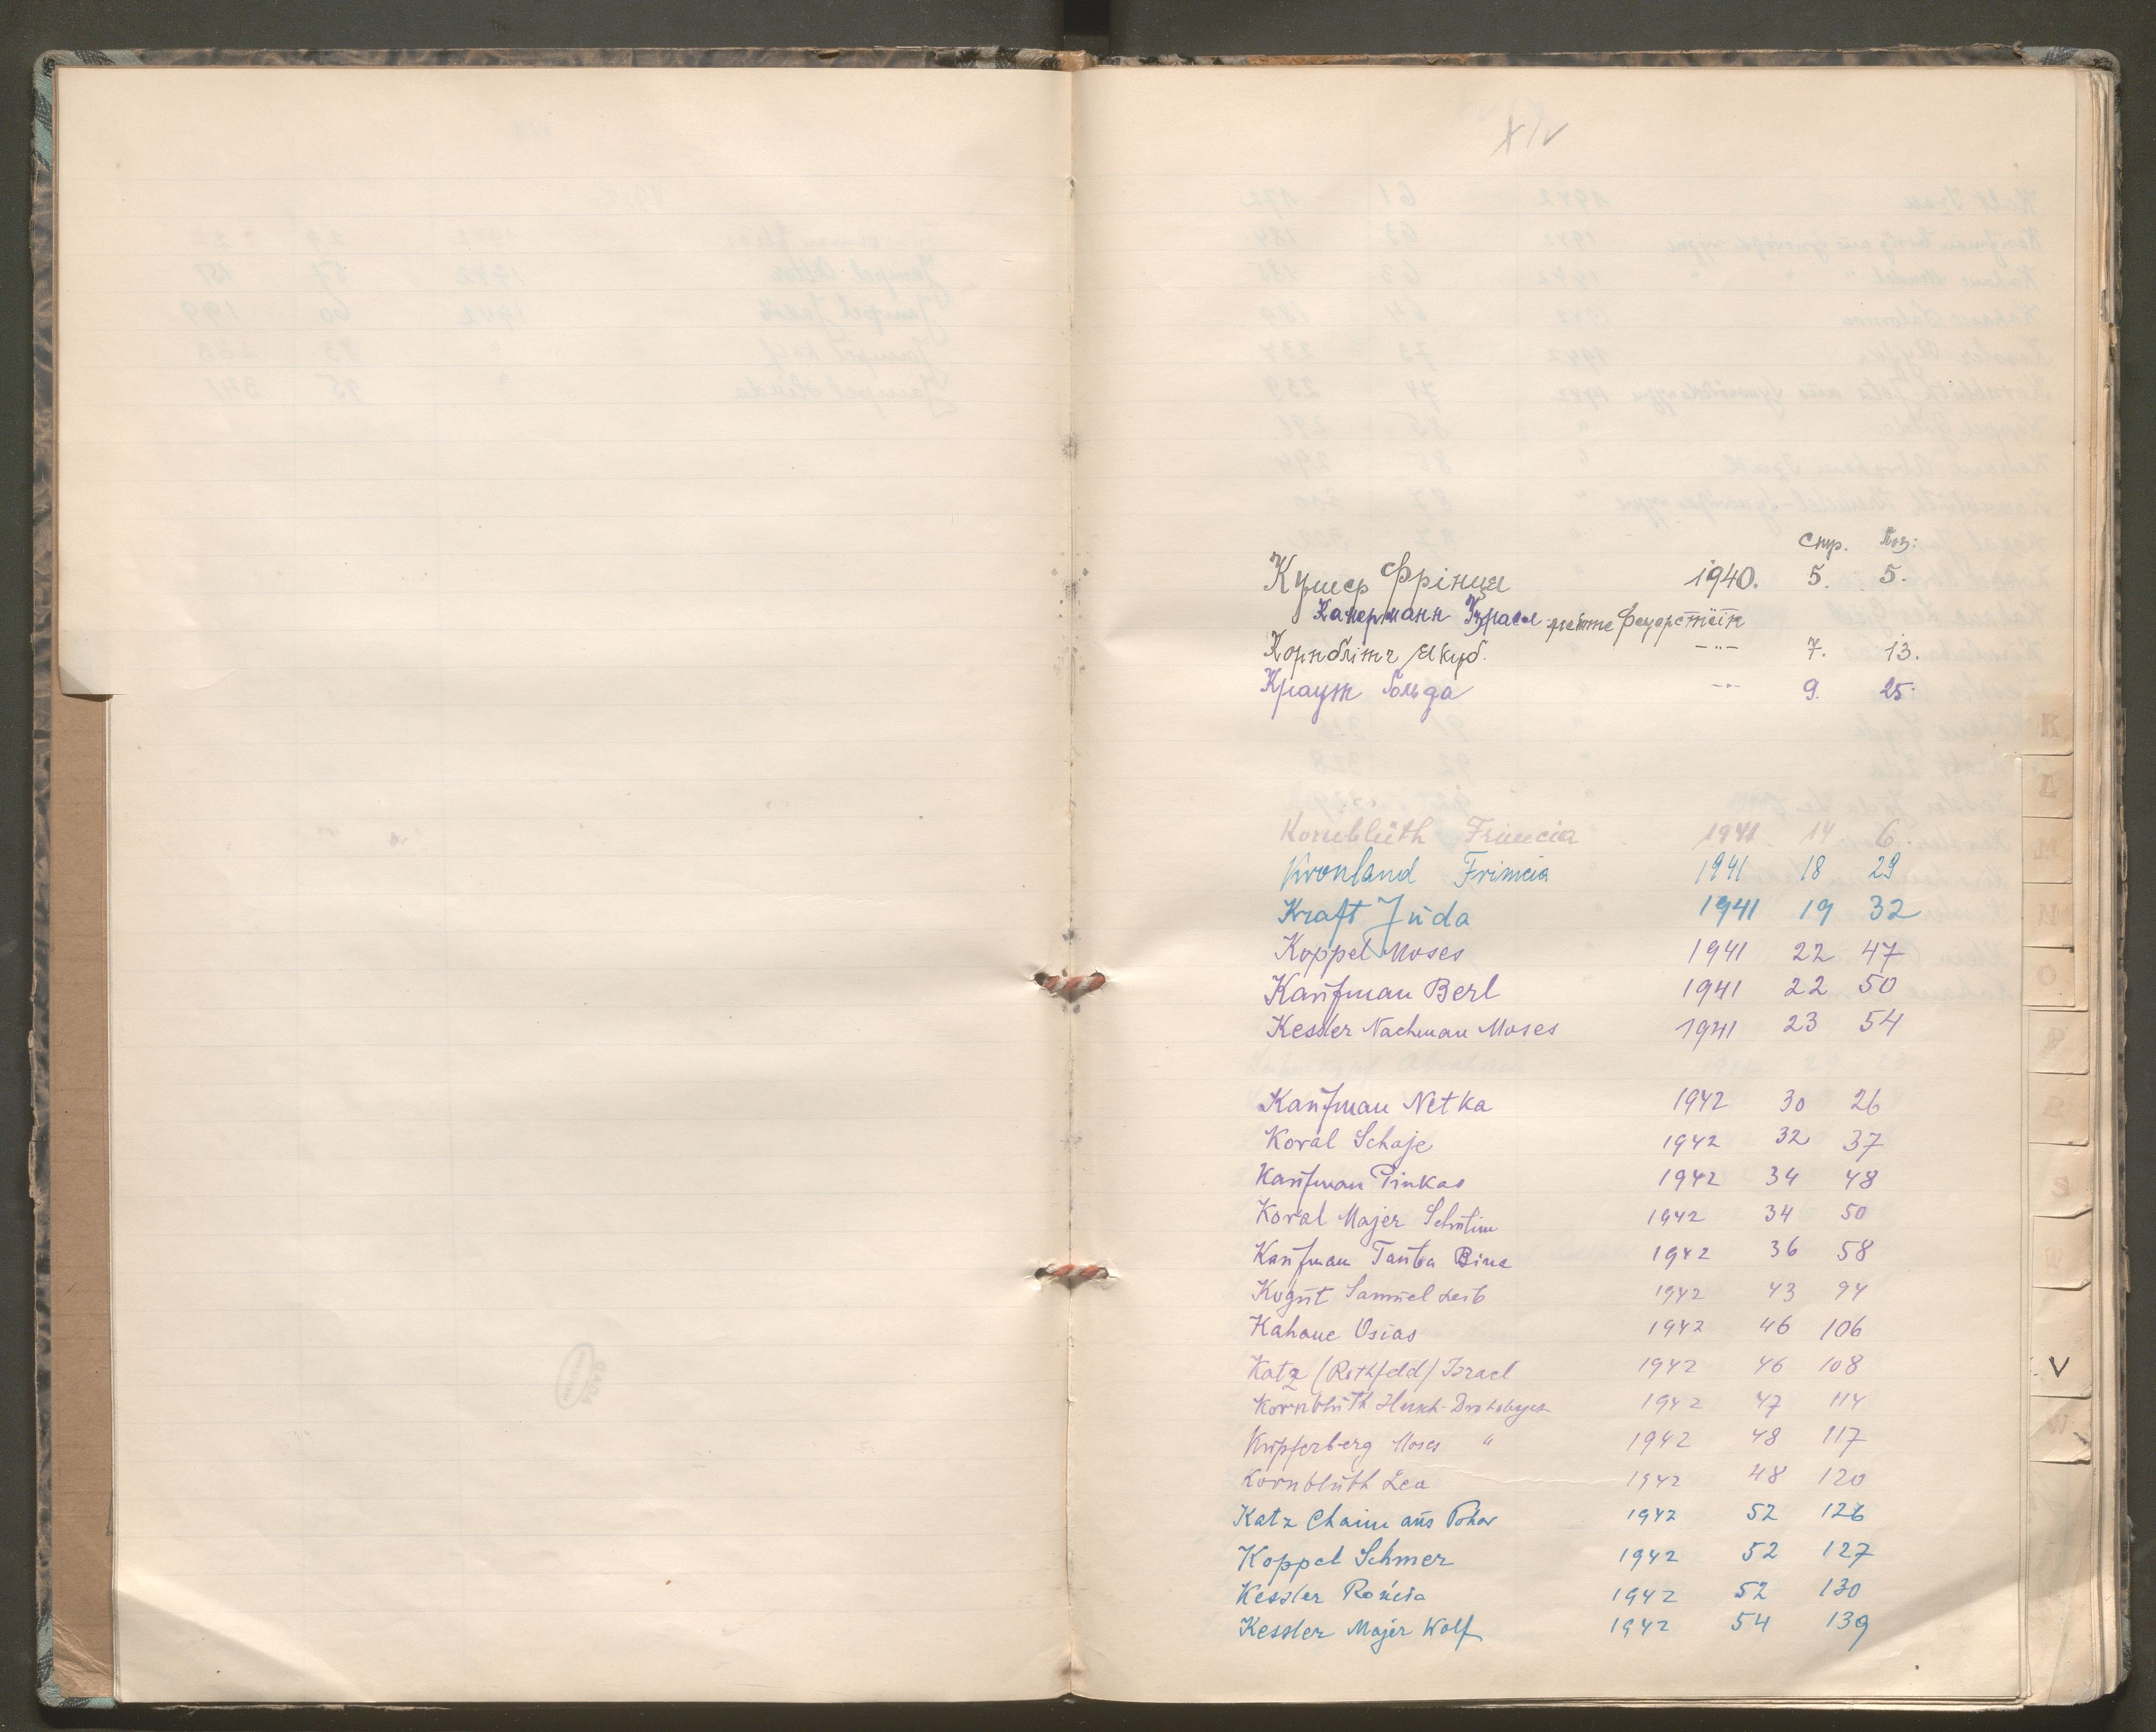 XIV
Стр. Поз:
Кушер Фрінця 1940. 5. 5.
Камерманн Ізраел
Корнблітг Якуб. -"- 7. 13.
Крауж Гольда -"- 9. 25.
Kornblüth Frincia 1941. 14 6.
Kronland Frimcia 1941 18 29
Kraft Júda 1941 19 32
Koppel Moses 1941 22 47
Kaŭfman Berl 1941 22 50
Kessler Nachman Moses 1941 23 54
Abraham 29
Kaŭfman Netka 1942 30 26
Koral Schaje 1942 32 37
Kaŭfman Pinkas 1942 34 48
Koral Majer 1942 34 50
Kaŭfman Taŭba Bina 1942 36 58
Kogŭt Samŭel Leib 1942 43 94
Kahane Osias 1942 46 106
Katz (Rothfeld) Israel 1942 46 108
Kornblüth Hersch-Drohobycz 1942 47 114
Kŭpferberg Moses " 1942 48 117
Kornblüth Lea 1942 48 120
Katz Chaim aŭs Pohar 1942 52 126
Koppel Schmer 1942 52 127
Kessler Rońcia 1942 52 130
Kessler Majer Wolf 1942 54 139
K
L
M
N
O
P
R
S
V
W